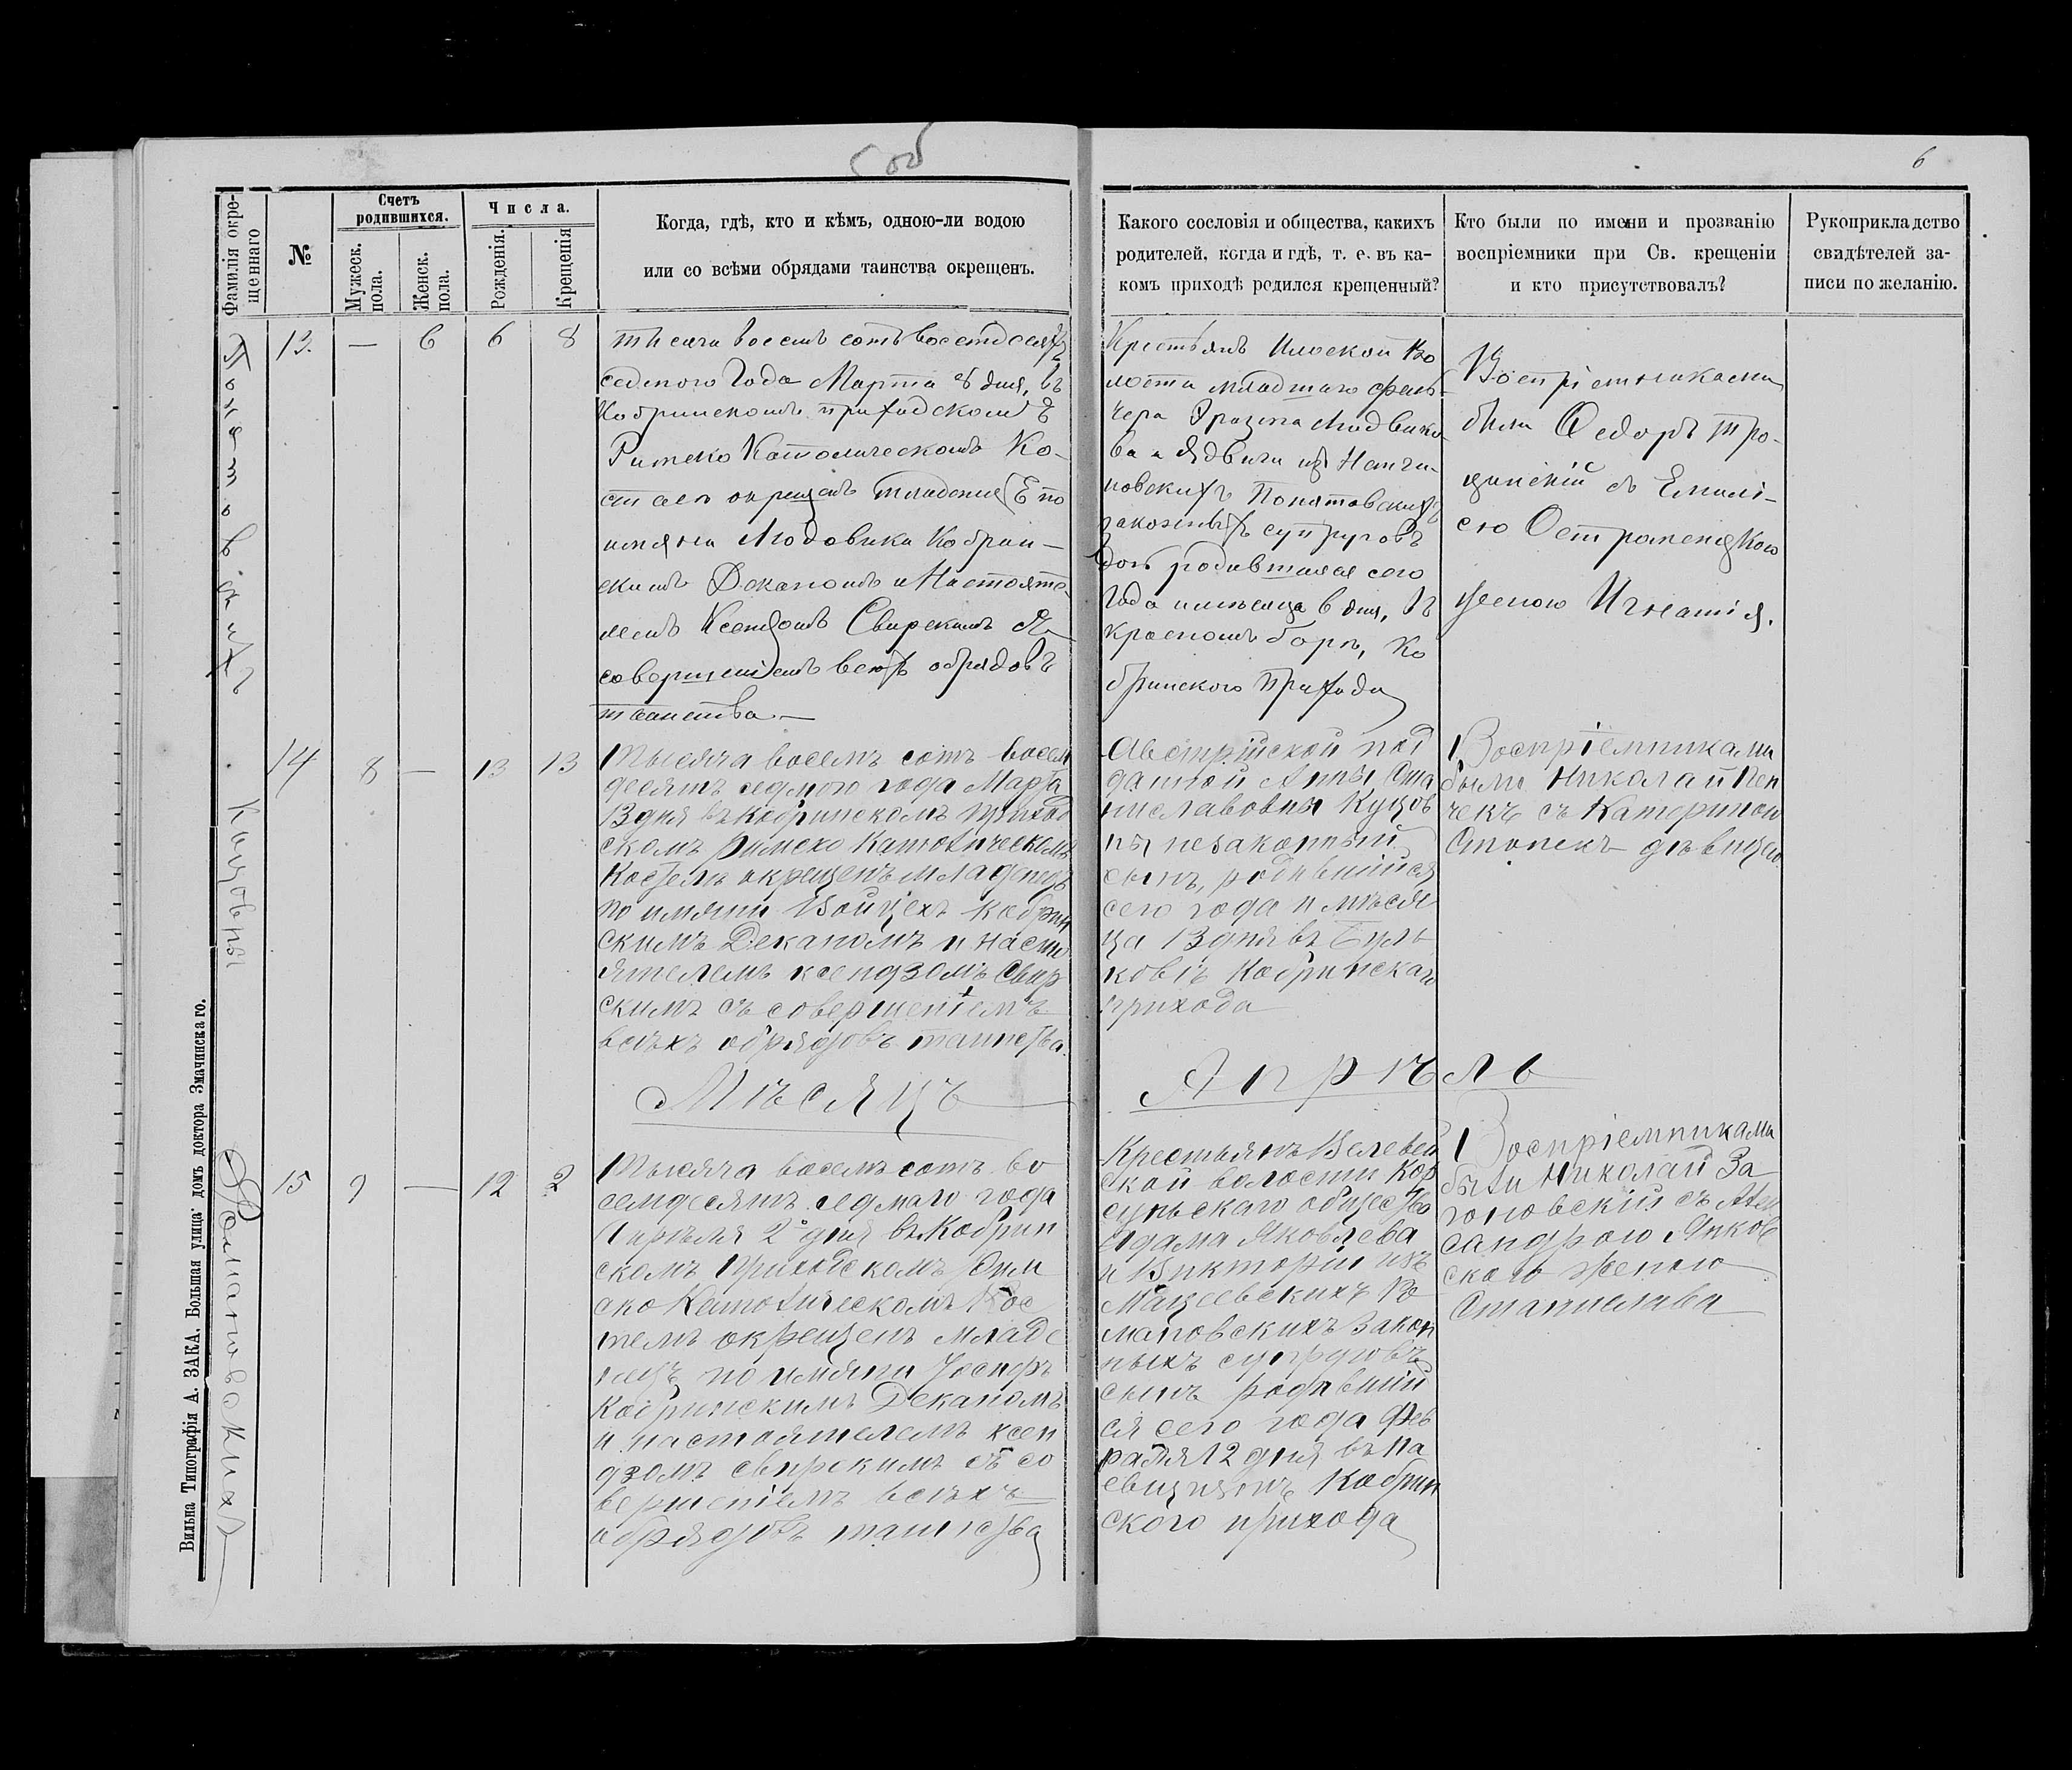 6
Фамилія окре-
щеннаго
№
Счетъ
родившихся.
Мужеск.
пола.
Женск.
пола.
Числа.
Рожденія.
Крещенія
Когда, гдѣ, кто и кѣмъ, одною-ли водою
или со всѣми обрядами таинства окрещенъ.
Какого сословія и общества, какихъ
родителей, когда и гдѣ, т. е. въ ка-
комъ приходѣ родился крещенный?
Кто были по имени и прозванію
воспріемники при Св. крещеніи
и кто присутствовалъ?
Рукоприкладство
свидѣтелей за-
писи по желанію.
Понятовскихъ
13. — 6 6 8
тысяча восемь сотъ восемдесятъ
седмого Года Марта 8 дня, въ
Кобринскомъ приходскомъ
Римско Католическомъ Ко-
стелѣ окрещенъ младенецъ по
имяни Людовика Кобрин-
скимъ Деканомъ и Настояте-
лемъ Ксендзомъ Свирскимъ
совершеніемъ всѣхъ обрядовъ
таинства —
Крестьянъ Илоской Во
лости младшаго фель-
чера Франца Людвико
ва и Ядвиги изъ
Понятовскихъ
законныхъ супруговъ
дочь родившаяся сего
Года и мѣсяца 6 дня, въ
красномъ борѣ, Ко
бринского Прихода
Воспріемниками
были Федоръ Тро-
цинскій съ Емилі-
ею
женою Игнатія.
Кацовны
14 8 — 13 13
Тысяча восемъ сотъ восем
десятъ седмого года Марта
13 дня въ Кобринскомъ приход
скомъ римско Католическомъ
Костелѣ окрещенъ младенецъ
по имяни Войцехъ Кобрин
скимъ Деканомъ и насто
ятелемъ ксендзомъ Свир
скимъ съ совершеніемъ
всѣхъ обрядовъ таинства.
Австрійской под
данной Анны Ста
ниславовны Куцов
ны незаконный
сынъ, родившійся
сего года и мѣся
ца 13 дня въ Буль
ковѣ Кобринскаго
прихода
Воспріемниками
были Николай Пен
чекъ съ Катериною
Стопекъ дѣвицею
Мѣсяцъ Апрѣль
Романовскихъ
15 9 — 12 2
Тысяча восемъ сотъ во
семдесятъ седмаго года
Апрѣля 2 дня въ Кобрин
скомъ приходскомъ Рим
ско Католическомъ Кос
телѣ окрещенъ младе
нецъ по имяни Іосифъ
Кобринскимъ Деканомъ
и настоятелемъ ксен
дзомъ Свирскимъ съ со
вершеніемъ всѣхъ
обрядовъ таинства
Крестьянъ Велевей
ской волости Кор
сунскаго общества
Адама Яковлева
и Викторіи изъ
Мацеевскихъ Ро
мановскихъ Закон
ныхъ супруговъ
сынъ родивший
ся сего года Фев
раля 12 дня въ
Кобрин
ского прихода
Воспріемниками
были Николай За
гоновскій съ Алек
сандрою Янков
скою женою
Станислава
Вильна Типографія А. ЗАКА, Большая улица домъ доктора Змачинскаго.